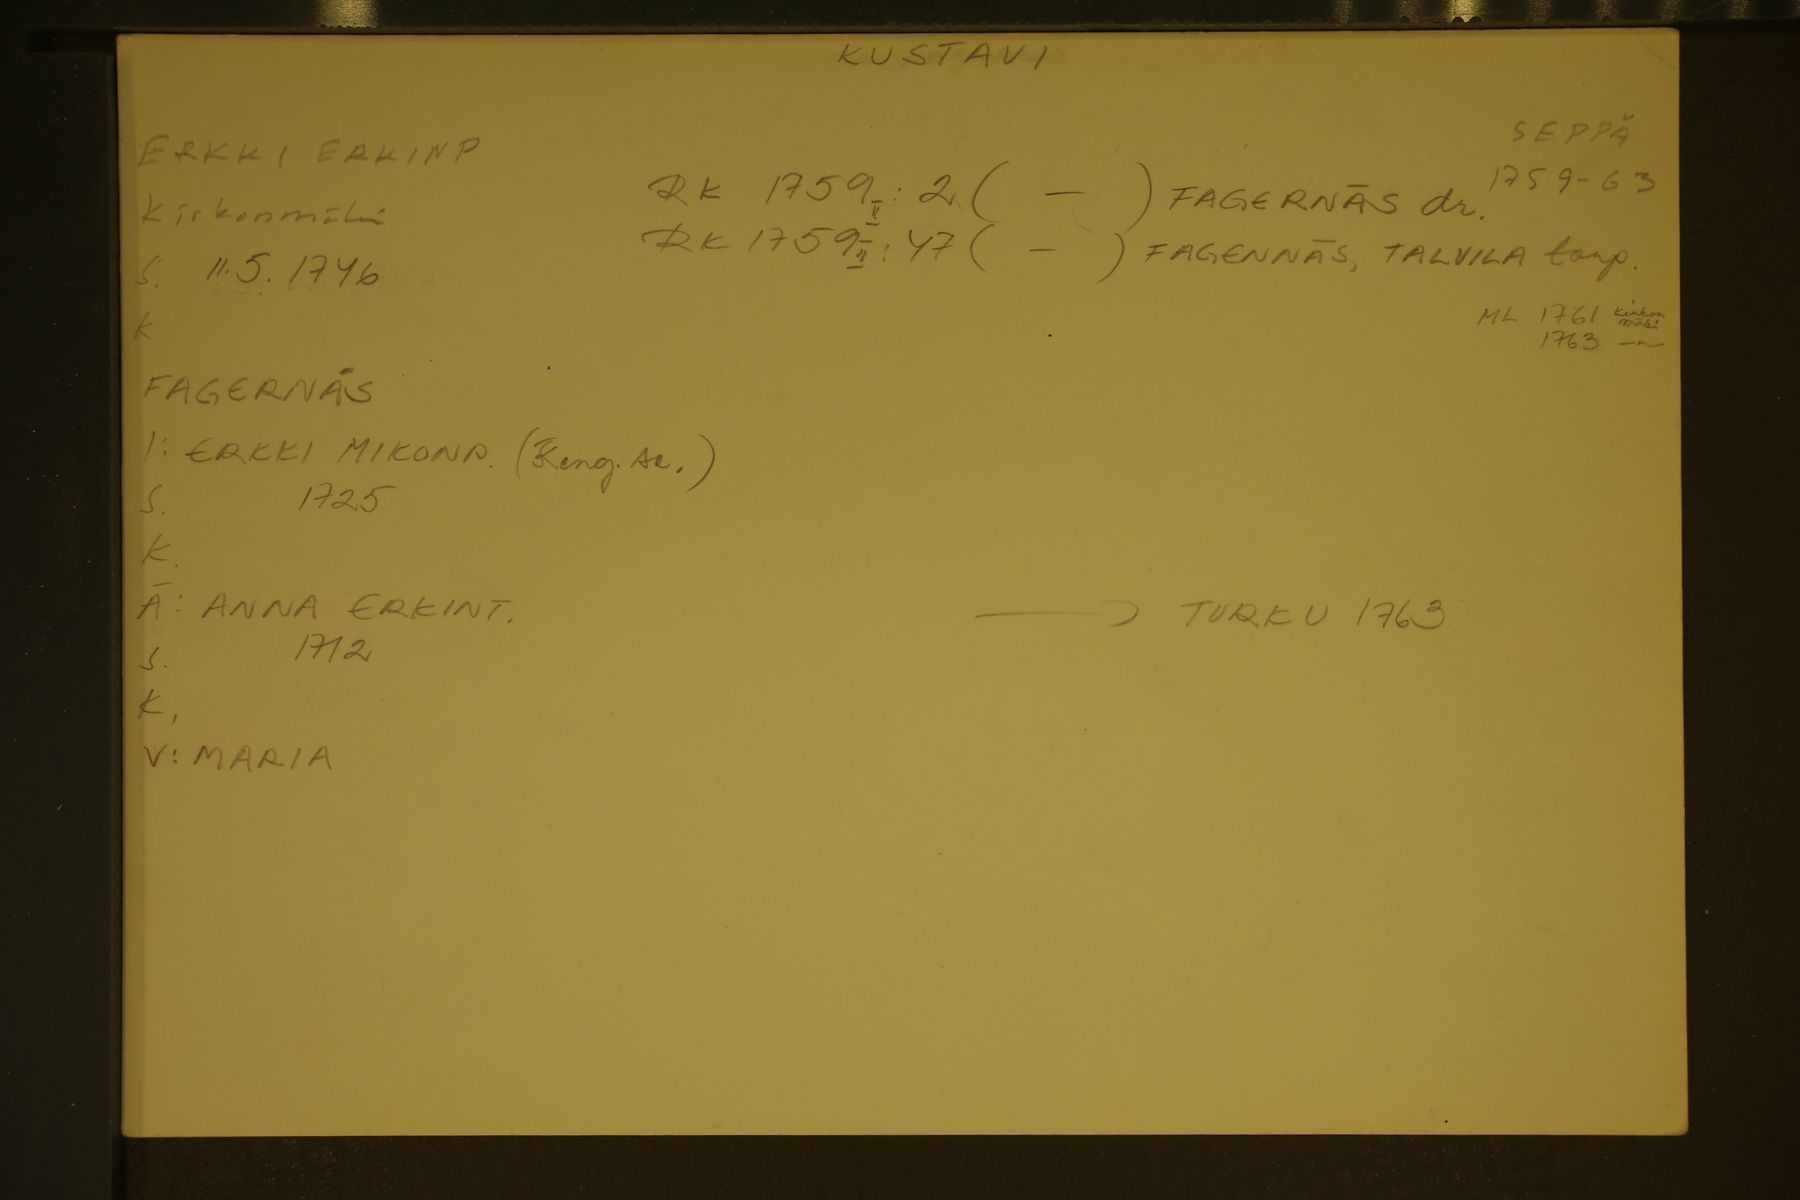 KUSTAVI
SEPPÄ
1759-63
ERKKI ERKINP
Kirkonmäki
S. 11.5.1746
K
RK 1759 II: 2 ( — ) FAGERNÄS dr.
RK 1759 II: 47 ( — ) FAGENNÄS, TALVILA torp.
ML 1761 Kirkon
mäki
1763 —"—
FAGERNÄS
I: ERKKI MIKONP.
S. 1725
K.
Ä: ANNA ERKINT.
S. 1712
K.
→ TURKU 1763
V: MARIA